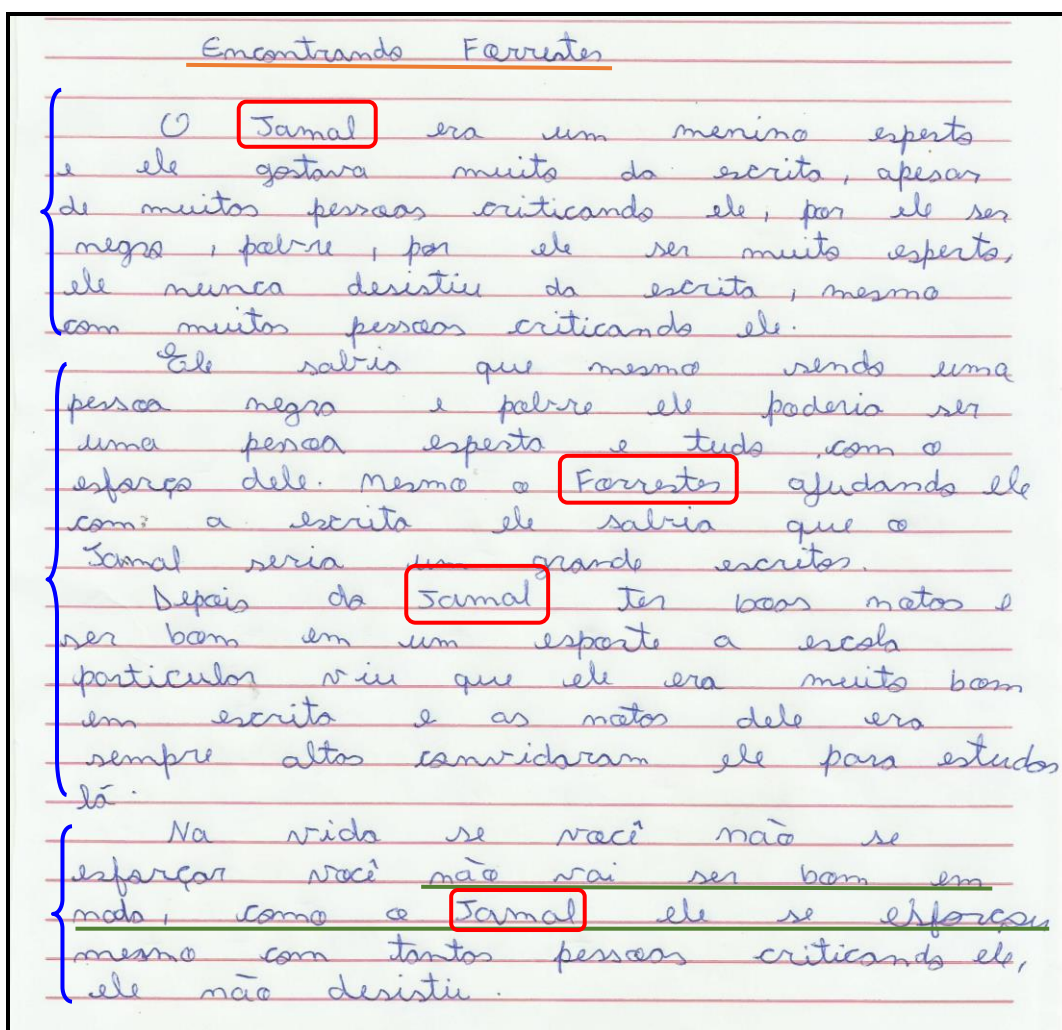 Encontrando Forrester
O Jamal era um menino esperto
e ele gostava muito da escrita, apesar
de muitas pessoas criticando ele, por ele ser
negro, pobre, por ele ser muito esperto,
ele nunca desistiu da escrita, mesmo
com muitas pessoas criticando ele.
Ele sabia que mesmo sendo uma
pessoa negra e pobre ele poderia ser
uma pessoa esperta e tudo com o
esforço dele. Mesmo o Forrester ajudando ele
com a escrita ele sabia que o
Jamal seria um grande escritor.
Depois do Jamal ter boas notas e
ser bom em um esporte a escola
particular viu que ele era muito bom
em escrita e as notas dele era
sempre altas convidaram ele para estudar
lá.
Na vida se você não se
esforçar você não vai ser bom em
nada, como o Jamal ele se esforçou
mesmo com tantas pessoas criticando ele,
ele não desistiu.